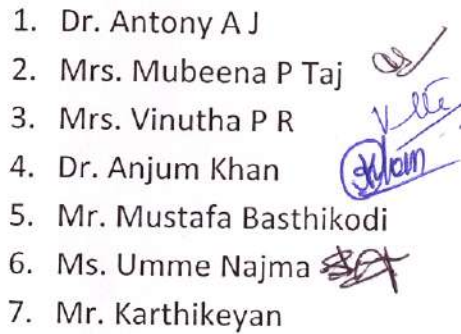 1. Dr. Antony A J
2. Mrs. Mubeena P Taj
3. Mrs. Vinutha P R
4. Dr. Anjum Khan
5. Mr. Mustafa Basthikodi
6. Ms. Umme Najma
7. Mr. Karthikeyan